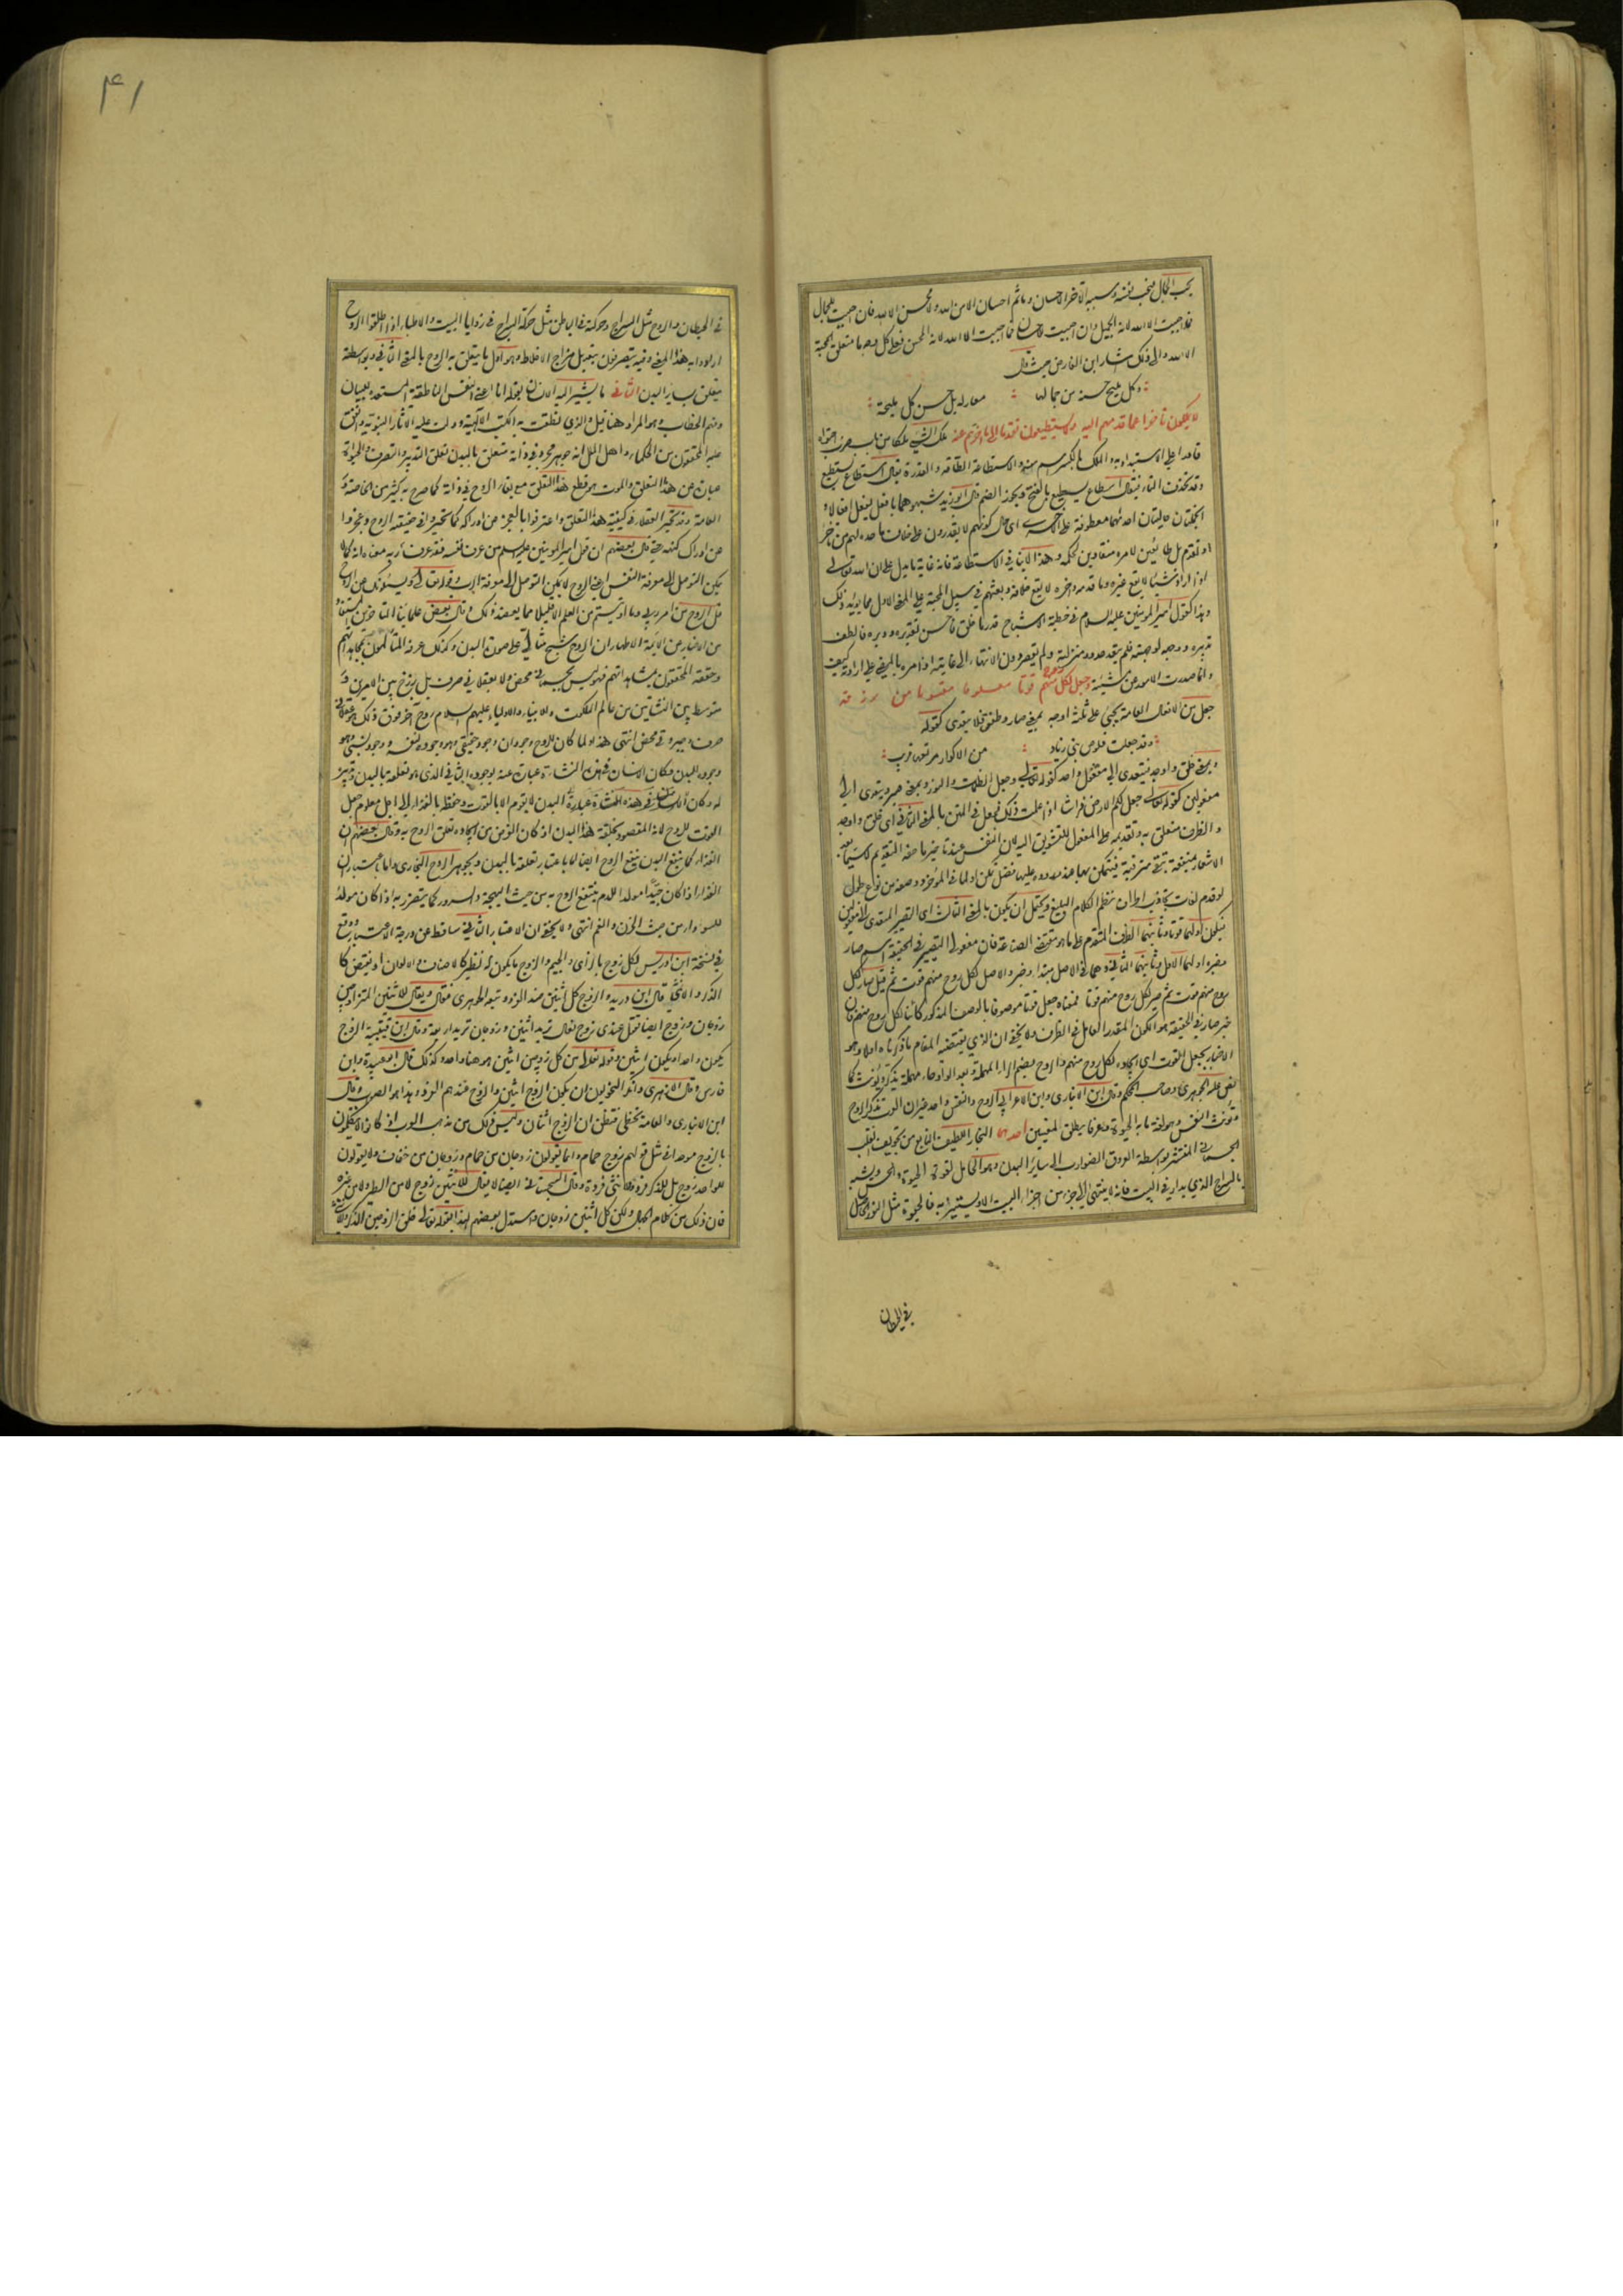 يحب الجمال فيحب نفسه وسببه الآخر الاحسان وما ثم احسان الا من الله ولا محسن الا الله فان احببت للجمال
فما احببت الا الله لانه الجميل وان احببت للاحسان فما احببت الا الله لانه المحسن فعلى كل وجه ما متعلق المحبة
الا الله والى ذلك اشار ابن الفارض حيث قال
وكل مليح حسنه من جمالها معار له بل حسن كل مليحة
لا يملكون تاخرا عما قدمهم اليه ولا يستطيعون تقدما الى ما اخرهم عنه ملك الشيء ملكا من باب ضرب احتواه
قادرا على الاستبداد به والملك بالكسر اسم منه والاستطاعة الطاقة والقدرة يقال استطاع يستطيع
وقد تحذف التاء فيقال اسطاع يسطيع بالفتح ويجوز الضم قال ابو زيد شبهوهما بافعل يفعل افعالا و
الجملتان حاليتان احدهما معطوفة على الاخرى اي حال كونهم لا يقدرون على خلاف ما حده لهم من تاخر
او تقدم بل طائعين لامره منقادين لحكمه وهذا لا ينافي الاستطاعة فانه غاية ما يدل على ان الله تعالى
اذا اراد شيئا لا يقع غيره وما قدمه واخره لا يقع خلافه وبعثهم في سبيل المحبة على المعنى الاول مما يؤيد ذلك
وهذا كقول امير المومنين عليه السلام في خطبة الاشباح قدر ما خلق فاحسن تقديره ودبره فالطف
تدبيره ووجهه لوجهته فلم يتعد حدود منزلته ولم يقصر دون الانتهاء الى غايته اذ امره بالمضي على ارادته كيف
وانما صدرت الامور عن مشيئته وجعل لكل روح منهم قوتا معلوما مقسوما من رزقه
جعل من الافعال العامة يجيء على ثلثة اوجه بمعنى صار وطفق فلا يتعدى كقوله
وقد جعلت قلوص بني زياد من الاكوار مرتعها قريب
وبمعنى خلق واوجد فيتعدى الى مفعول واحد كقوله تعالى وجعل الظلمات والنور وبمعنى صير ويتعدى الى
مفعولين كقوله تعالى جعل لكم الارض فراشا اذا علمت ذلك فجعل في المتن بالمعنى الثاني اي خلق واوجد
والظرف متعلق به وتقديمه على المفعول للتشويق اليه لان النفس عند تاخير ما حقه التقديم لا سيما بعد
الاشعار بمنفعته تبقى مترقبة فيتمكن بها عند وروده عليها فضل تمكن او لما في المؤخر ووصفه من نوع طول
لو قدم لفات تجاذب اطراف نظم الكلام البليغ ويحتمل ان يكون بالمعنى الثالث اي التصيير المتعدي الى مفعولين
فيكون اولهما قوتا وثانيهما الظرف المتقدم على ما هو مقتضى الصناعة فان مفعولي التصيير في الحقيقة اسم صار
وخبره اولهما الاول وثانيهما الثاني وهما في الاصل مبتدا وخبر والاصل لكل روح منهم قوت ثم قيل صار لكل
روح منهم قوت ثم صير لكل روح منهم قوتا فمعناه جعل قوتا موصوفا بالوصف المذكور كائنا لكل روح منهم فان
خبر صار في الحقيقة هو الكون المقدر العامل في الظرف ولا يخفى ان الذي يقتضيه المقام ما ذكرناه اولا وهو
الاخبار بجعل القوت اي ايجاده لكل روح منهم والروح بضم الراء المهملة بعد الواو حاء مهملة يذكر ويؤنث كما
نص عليه الجوهري وصاحب المحكم وقال ابن الانباري وابن الاعرابي الروح والنفس واحد غير ان العرب تذكر الروح
وتؤنث النفس وهو لغة ما به الحيوة وعرفا يطلق لمعنيين احدهما البخار اللطيف النابع من تجويف القلب
الجسماني المنتشر بواسطة العروق الضوارب الى سائر البدن وهو الحامل لقوة الحيوة والحس ويشبه
بالسراج الذي يدار في البيت فانه لا ينتهي الى جزء من اجزاء البيت الا ويستنير به فالحيوة مثل النور الحاصل
في الحيطان
٤١
في الحيطان والروح مثل السراج وحركته في الباطن مثل حركة السراج في زوايا البيت والاطباء اذا اطلقوا الروح
ارادوا به هذا المعنى وفيه يتصرفون بتعديل مزاج الاخلاط وهو اول ما يتعلق به الروح بالمعنى الثاني وبواسطته
يتعلق بسائر البدن الثاني ما يشير اليه الانسان بقوله انا اعني النفس الناطقة المستعدة للبيان
وفهم الخطاب وهو المراد هنا قيل والذي نطقت به الكتب الالهية ودلت عليه الآثار النبوية واتفق
عليه المحققون من الحكماء واهل الملل انه جوهر مجرد في ذاته متعلق بالبدن تعلق التدبير والتصرف والحيوة
عبارة عن هذا التعلق والموت هو قطع هذا التعلق مع بقاء الروح في ذاته كما صرح به كثير من الخاصة و
العامة وقد تحير العقلاء في كيفية هذا التعلق واعترفوا بالعجز عن ادراكه كما تحيروا في حقيقة الروح وعجزوا
عن ادراك كنهه حتى قال بعضهم ان قول امير المومنين عليه السلام من عرف نفسه فقد عرف ربه معناه انه كما لا
يمكن التوصل الى معرفة النفس اعني الروح لا يمكن التوصل الى معرفة الرب وقوله تعالى ويسئلونك عن الروح
قل الروح من امر ربي وما اوتيتم من العلم الا قليلا مما يعضد ذلك وقال بعض علمائنا المتاخرين المستفاد
من الاخبار عن الائمة الاطهار ان الروح شبح مثالي على صورة البدن وكذلك عرفه المتالهون بمجاهداتهم
وحققه المحققون بمشاهداتهم فهو ليس بجسماني محض ولا بعقلاني صرف بل برزخ بين الامرين و
متوسط بين النشاتين من عالم الملكوت وللانبياء والاولياء عليهم السلام روح آخر فوق ذلك هو عقلاني
صرف وجبروتي محض انتهى هذا ولما كان للروح وجودان وجود حقيقي وهو وجوده لنفسه ووجود نسبي وهو
وجوده للبدن وكان الانسان في هذه النشاة عبارة عنه بوجوده الثاني الذي هو تعلقه بالبدن وتدبيره
له وكان البدن لا يقوم الا بالقوت وحفظ بالغذاء الى اجل معلوم جعل
القوت للروح لانه المقصود بخلقة هذا البدن اذ كان الغرض من ايجاده تعلق الروح به وقال بعضهم ان
الغذاء كما ينفع البدن ينفع الروح ايضا لا باعتبار تعلقه بالبدن وبجوهر الروح البخاري واما باعتبار ان
الغذاء اذا كان جيدا مولدا للدم ينتفع الروح به من حيث البهجة والسرور كما يتضرر به اذا كان مولدا
للسوداء من حيث الحزن والغم انتهى ولا يخفى ان الاعتبار الثاني ساقط عن درجة الاعتبار ووقع
في نسخة ابن ادريس لكل زوج بالزاي والجيم والزوج ما يكون له نظير كالاصناف والالوان او نقيض كا
الذكر والانثى قال ابن دريد والزوج كل اثنين ضد الفرد وتبعه الجوهري فقال ويقال للاثنين المتزاوجين
زوجان وزوج ايضا تقول عندي زوج نعال تريد اثنين وزوجان تريد اربعة وقال ابن قتيبة الزوج
يكون واحدا ويكون اثنين وقوله تعالى من كل زوجين اثنين هو هنا واحد وكذلك قال ابو عبيدة وابن
فارس وقال الازهري وانكر النحويون ان يكون الزوج اثنين والزوج عندهم الفرد وهذا هو الصواب وقال
ابن الانباري والعامة تخطئ فتظن ان الزوج اثنان وليس ذلك من مذهب العرب اذ كانوا لا يتكلمون
بالزوج موحدا في مثل قولهم زوج حمام وانما يقولون زوجان من حمام وزوجان من خفاف ولا يقولون
للواحد زوج بل للذكر فرد وللانثى فردة وقال السجستاني ايضا لا يقال للاثنين زوج لا من الطير ولا من غيره
فان ذلك من كلام الجهال ولكن كل اثنين زوجان واستدل بعضهم لهذا بقوله تعالى خلق الزوجين الذكر والانثى